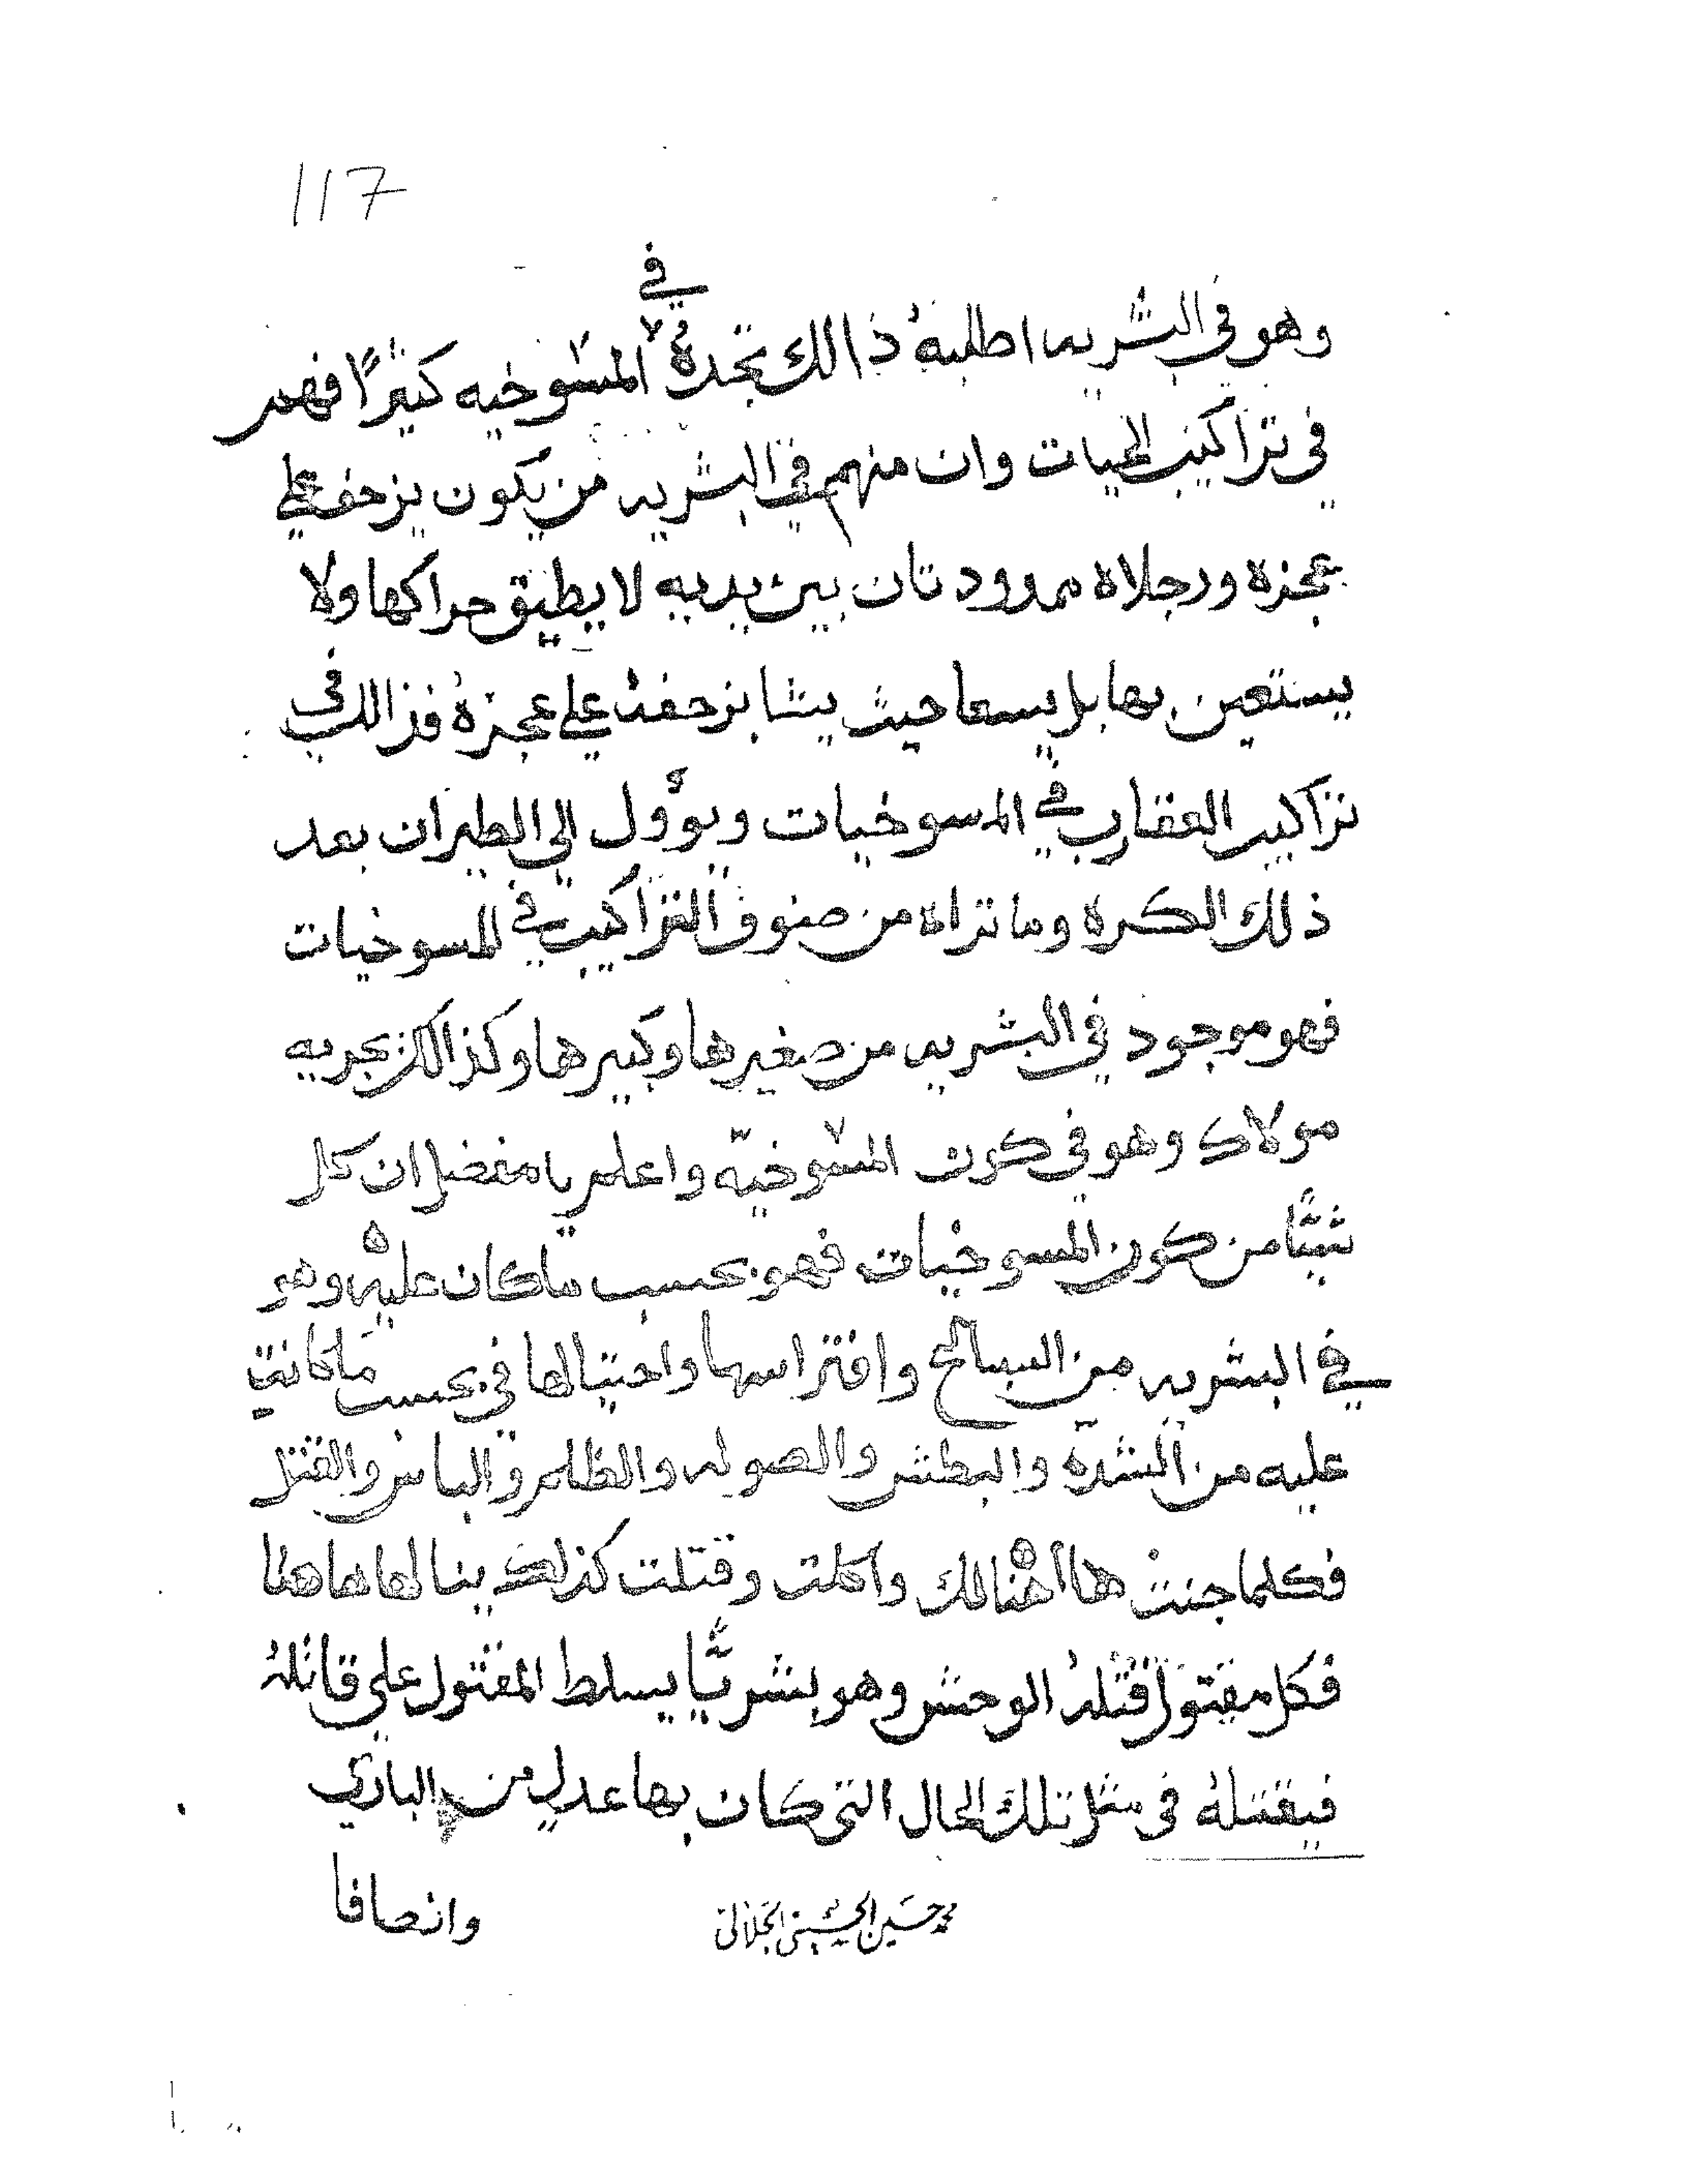 117
في
وهو في البشريه اطلبهُ ذالك تجدهُ المسوخيه كثيرًا فهم
في تراكيب الحيات وان منهم في البشريه من يكون يزحف على
عجزه ورجلاه ممدودتان بين يديه لا يطيق حراكها ولا
يستعين بها بل يسعا حيث يشا بزحفهُ على عجزهُ فذالك في
تراكيب العقارب في المسوخيات ويوؤل الى الطيران بعد
ذلك الكره وما تراه من صنوف التراكيب في المسوخيات
فهو موجود في البشريه من صغيرها وكبيرها وكذالك يجريه
مولاك وهو في كون المسوخيّه واعلم يا مفضل ان كل
شيًا من كون المسوخيات فهو بحسب ما كان عليه وهو
في البشريه من السبالخ وافتراسها واحتيالها في بحسب ما كانت
عليه من الشدّه والبطش والصوله والظلم والباس والقتل
فكلما جنت هاهنالك واكلت وقتلت كذلك ينالها هاهنا
فكل مقتول قتلهُ الوحش وهو بشريًّا يسلط المقتول على قاتلهُ
فيقتلهُ في مثل تلك الحال التي كان بها عدل من الباري
وانصافا
محمد حسين الحسيني الجلالي